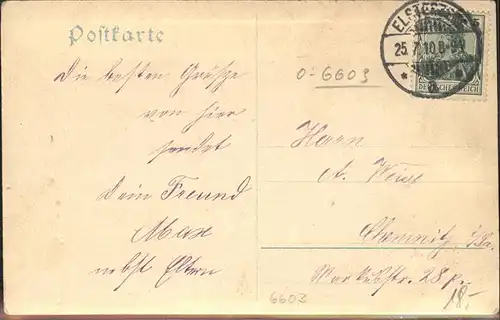 Postkarte
ELSTERBERG
25.7.10.8-9V
DEUTSCHES REICH
o-6603
Die besten Grüsze
von hier
sendet
Dein Freund
Max
nebst Eltern
Herrn
A. Weise
Chemnitz i/Sa.
28 pr.
6603
18.-